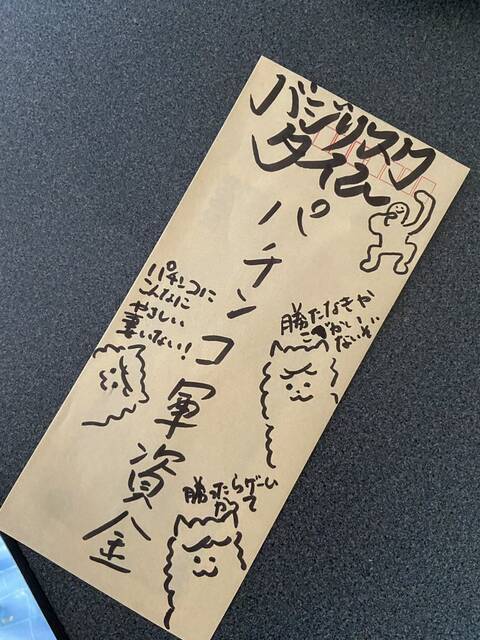 バジリスク
タイム
パチンコ軍資金
パチンコに
こんなに
やさしい
妻いない!
勝たなきゃ
こづかい
ないぞ
勝ったらゲーム
かって